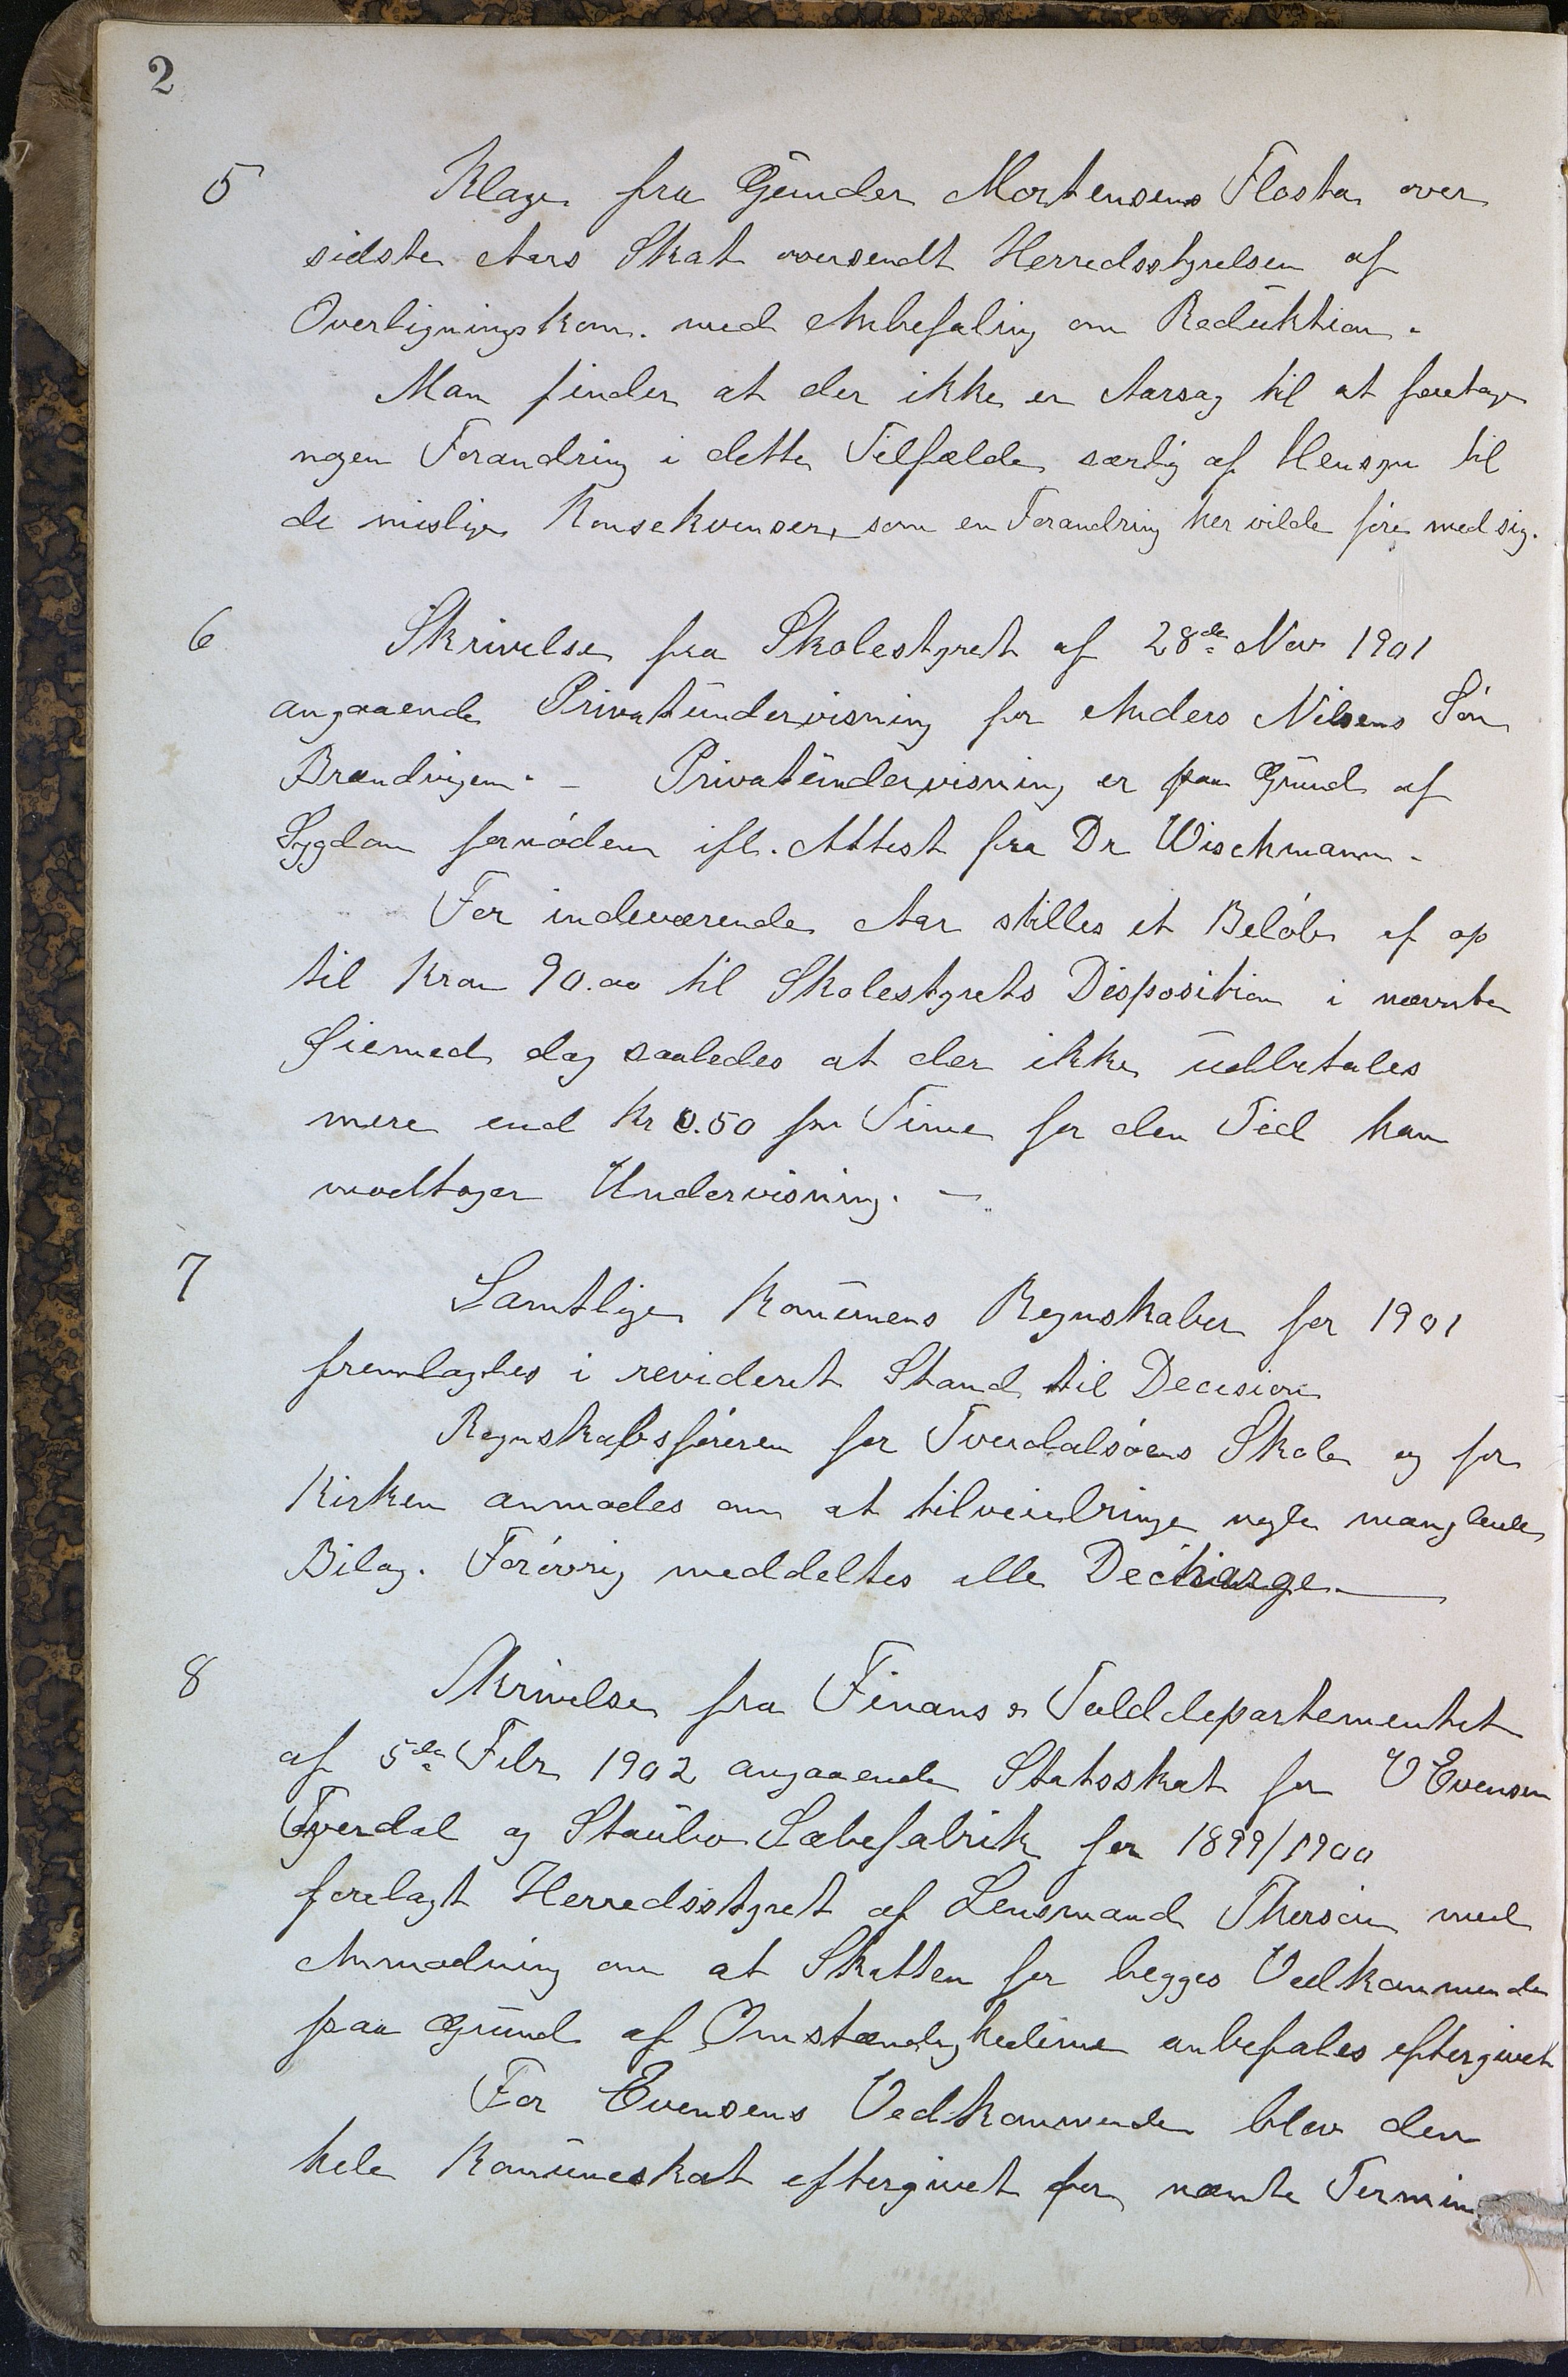 2
5 Klage fra Gunder Mortensens Flosta over
sidste Aars Skat oversendt Herredsstyrelsen af
Overligningskom. med Anbefaling om Reduktion.
Man finder at der ikke er Aarsag til at foretage
nogen Forandring i dette Tilfælde særlig af Hensyn til
de mislige Konsekvenser, som en Forandring her vilde före med sig.
6 Skrivelse fra Skolestyret af 28de Nov 1901
angaaende Privatundervisning for Anders Nilsens Sön
Brændvigen. – Privatundervisning er paa Grund af
Sygdom fornöden ifl. Attest fra Dr Wischmann.
For indeværende Aar stilles et Belöb af op
til Kron 90.00 til Skolestyrets Disposition i nævnte
Öiemed dog saaledes at der ikke udbetales
mere end Kr 0.50 pr Time for den Tid han
modtager Undervisning. –
7 Samtlige Komunens Regnskaber for 1901
fremlagdes i revideret Stand til Decision
Regnskabsföreren for Tverdalsöens Skole og for
Kirken anmodes om at tilveiebringe nogle manglende
Bilag. Forövrig meddeltes alle Decharge.
8 Skrivelse fra Finans & Tolddepartementet
af 5de Febr 1902 angaaende Statsskat for O Evensen
Tverdal og Staubo Sæbefabrik for 1899/1900
forelagt Herredsstyret af Lensmand Thorsen med
Anmodning om at Skatten for begges Vedkommende
paa Grund af Omstændighederne anbefales eftergivet
For Evensens Vedkommende blev den
hele Komuneskat eftergivet for nævnte Termin